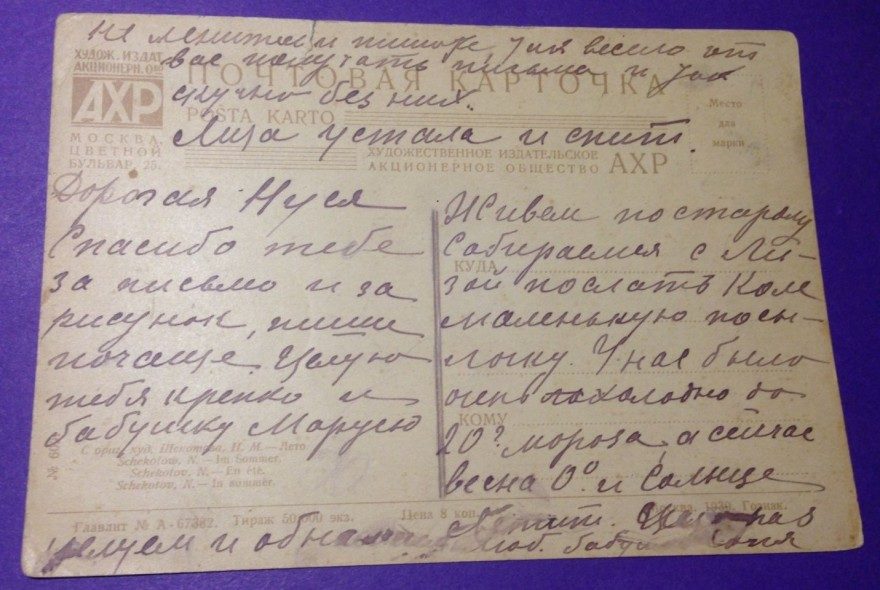 не ленитесь и пишите, Так весело от
вас получать письма и так
скучно без них.
Лиза устала и спит.
ХУДОЖ. ИЗДАТ.
АКЦИОНЕРН. О-ВО
АХР
МОСКВА,
ЦВЕТНОЙ
БУЛЬВАР, 25.
ПОЧТОВАЯ КАРТОЧКА
POSTA KARTO
ХУДОЖЕСТВЕННОЕ ИЗДАТЕЛЬСКОЕ
АКЦИОНЕРНОЕ ОБЩЕСТВО АХР
Место
для
марки
Дорогая Нуся
Спасибо тебе
за письмо и за
рисунок, пиши
почаще. Целую
тебя крепко и
бабушку Марусю
Живем по старому
Собираемся с Ли-
зой послать Коле
маленькую посы-
лочку. У нас было
очень похолодно до
20° мороза, а сейчас
весна 0° и Солнце
КУДА
КОМУ
С ориг. худ. Щекотова, Н. М.— Лето
Schekotow, N.— Im Sommer.
Schekotov, N.— En été.
Schekotov, N.— In summer.
Главлит № А-67382. Тираж 50.000 экз. Цена 8 коп.
целуем и
баб. Соня